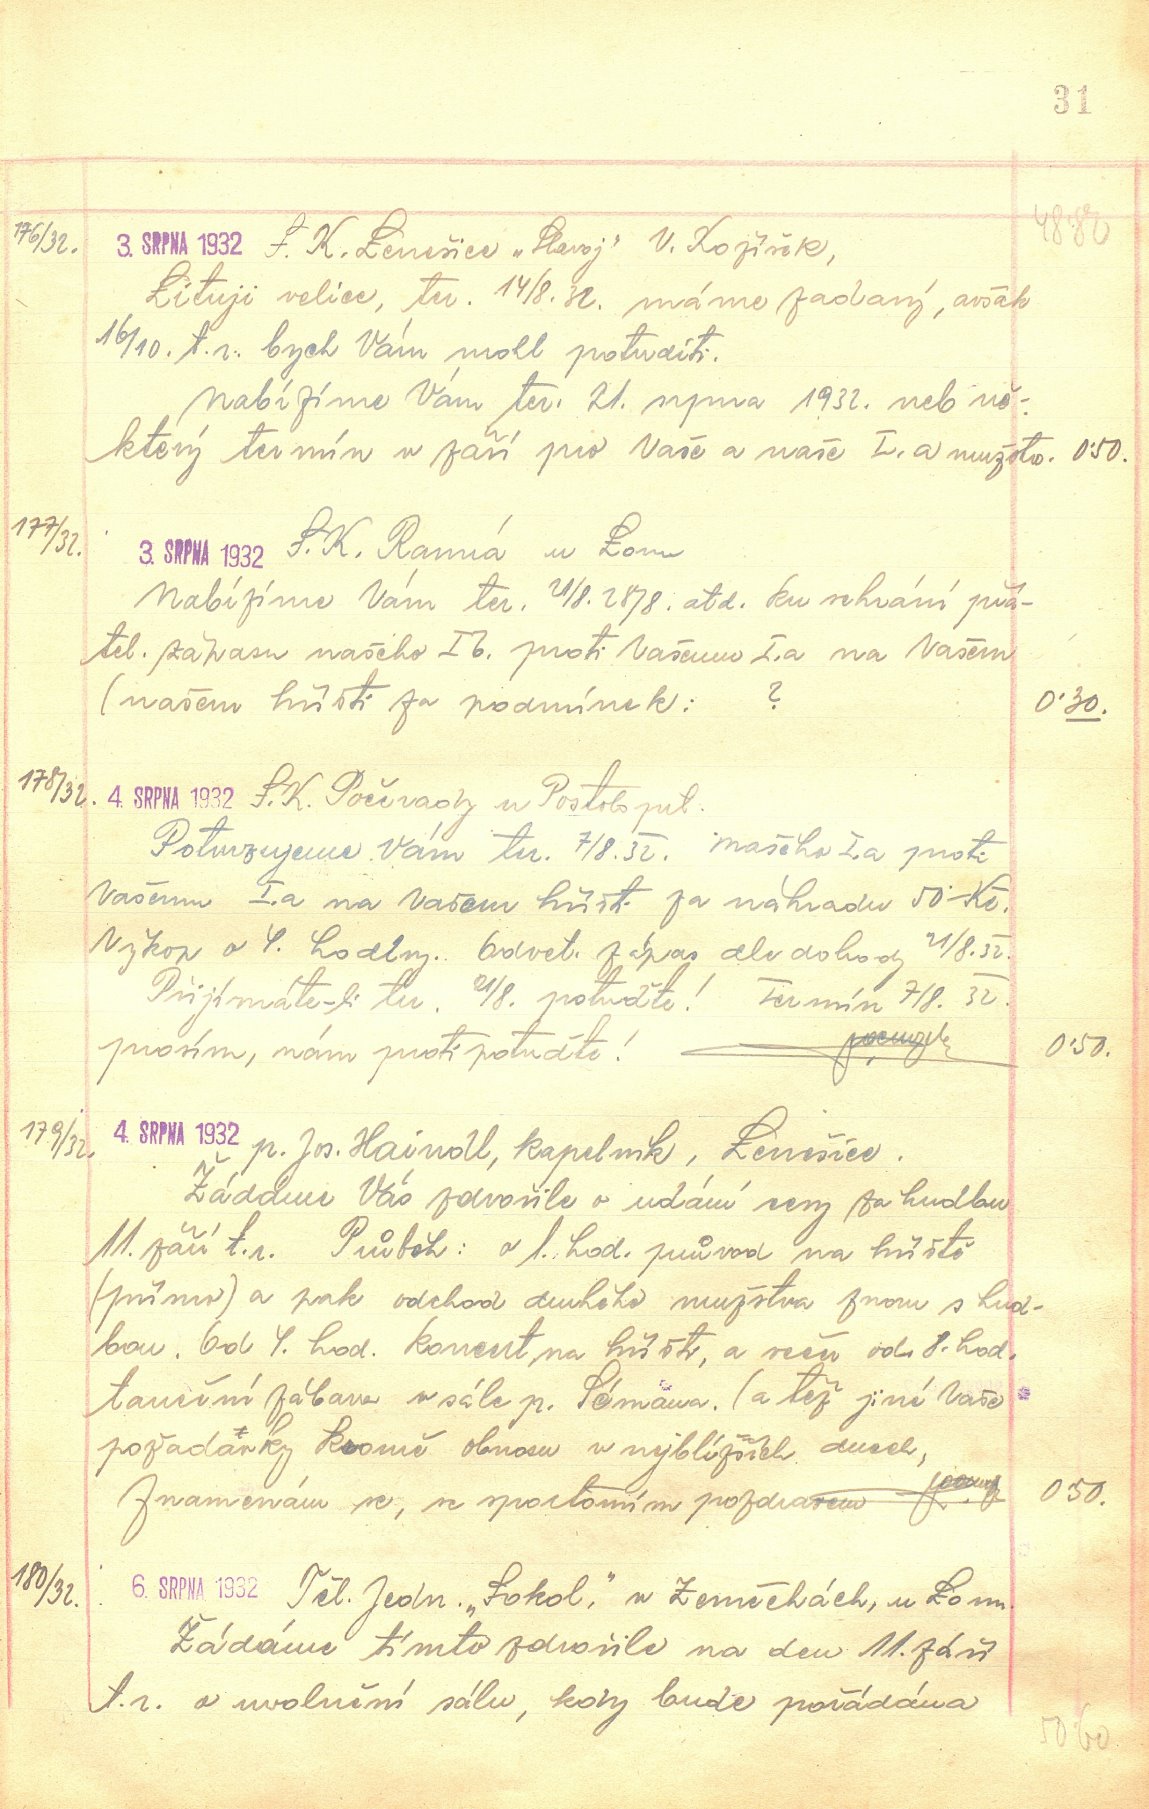 31
48·80
176/32. 3. SRPNA 1932 S. K. Lenešice „Slavoj" V. Kozíšek,
Lituji velice, ter. 14/8. 32. máme zadaný, avšak
16/10. t.r. bych Vám mohl potvrditi.
Nabízíme Vám ter. 21. srpna 1932. neb ně-
který termín v září pro Vaše a naše I. a mužstv. 0·50.
177/32. 3. SRPNA 1932 S. K. Ranná u Loun
Nabízíme Vám ter. 21/8. 28/8. atd. ku sehrání přá-
tel. zápasu našeho I b. proti Vašemu I.a na Vašem
(našem hřišti za podmínek: ? 0·30.
178/32. 4. SRPNA 1932 S.K. Počerady u Postoloprt.
Potvrzujeme Vám ter. 7/8. 32. našeho I.a proti
Vašemu I.a na Vašem hřišti za náhradu 50·Kč.
Výkop v 4. hodiny. Odvet. zápas dle dohody 21/8. 32.
Přijímáte-li ter. 21/8. potvrďte! Termín 7/8. 32.
prosím, nám protipotvrďte! 0·50.
179/32. 4. SRPNA 1932 p. Jos. Haindl, kapelník, Lenešice.
Žádáme Vás zdvořile o udání ceny za hudbu
11. září t.r. Průběh: v 1. hod. průvod na hřiště
(přímo) a pak odchod druhého mužstva znovu s hud-
bou. Od 4. hod. koncert na hřišti, a večer od 8. hod.
taneční zábava v sále p. Sémana. (a též jiné Vaše
požadavky kromě obnosu v nejbližších dnech,
Znamenám se, se sportovním pozdravem 0·50.
180/32. 6. SRPNA 1932 Těl. Jedn. „Sokol," v Zeměchách, u Loun.
Žádáme tímto zdvořile na den 11. září
t.r. o uvolnění sálu, kdy bude pořádána
50·60